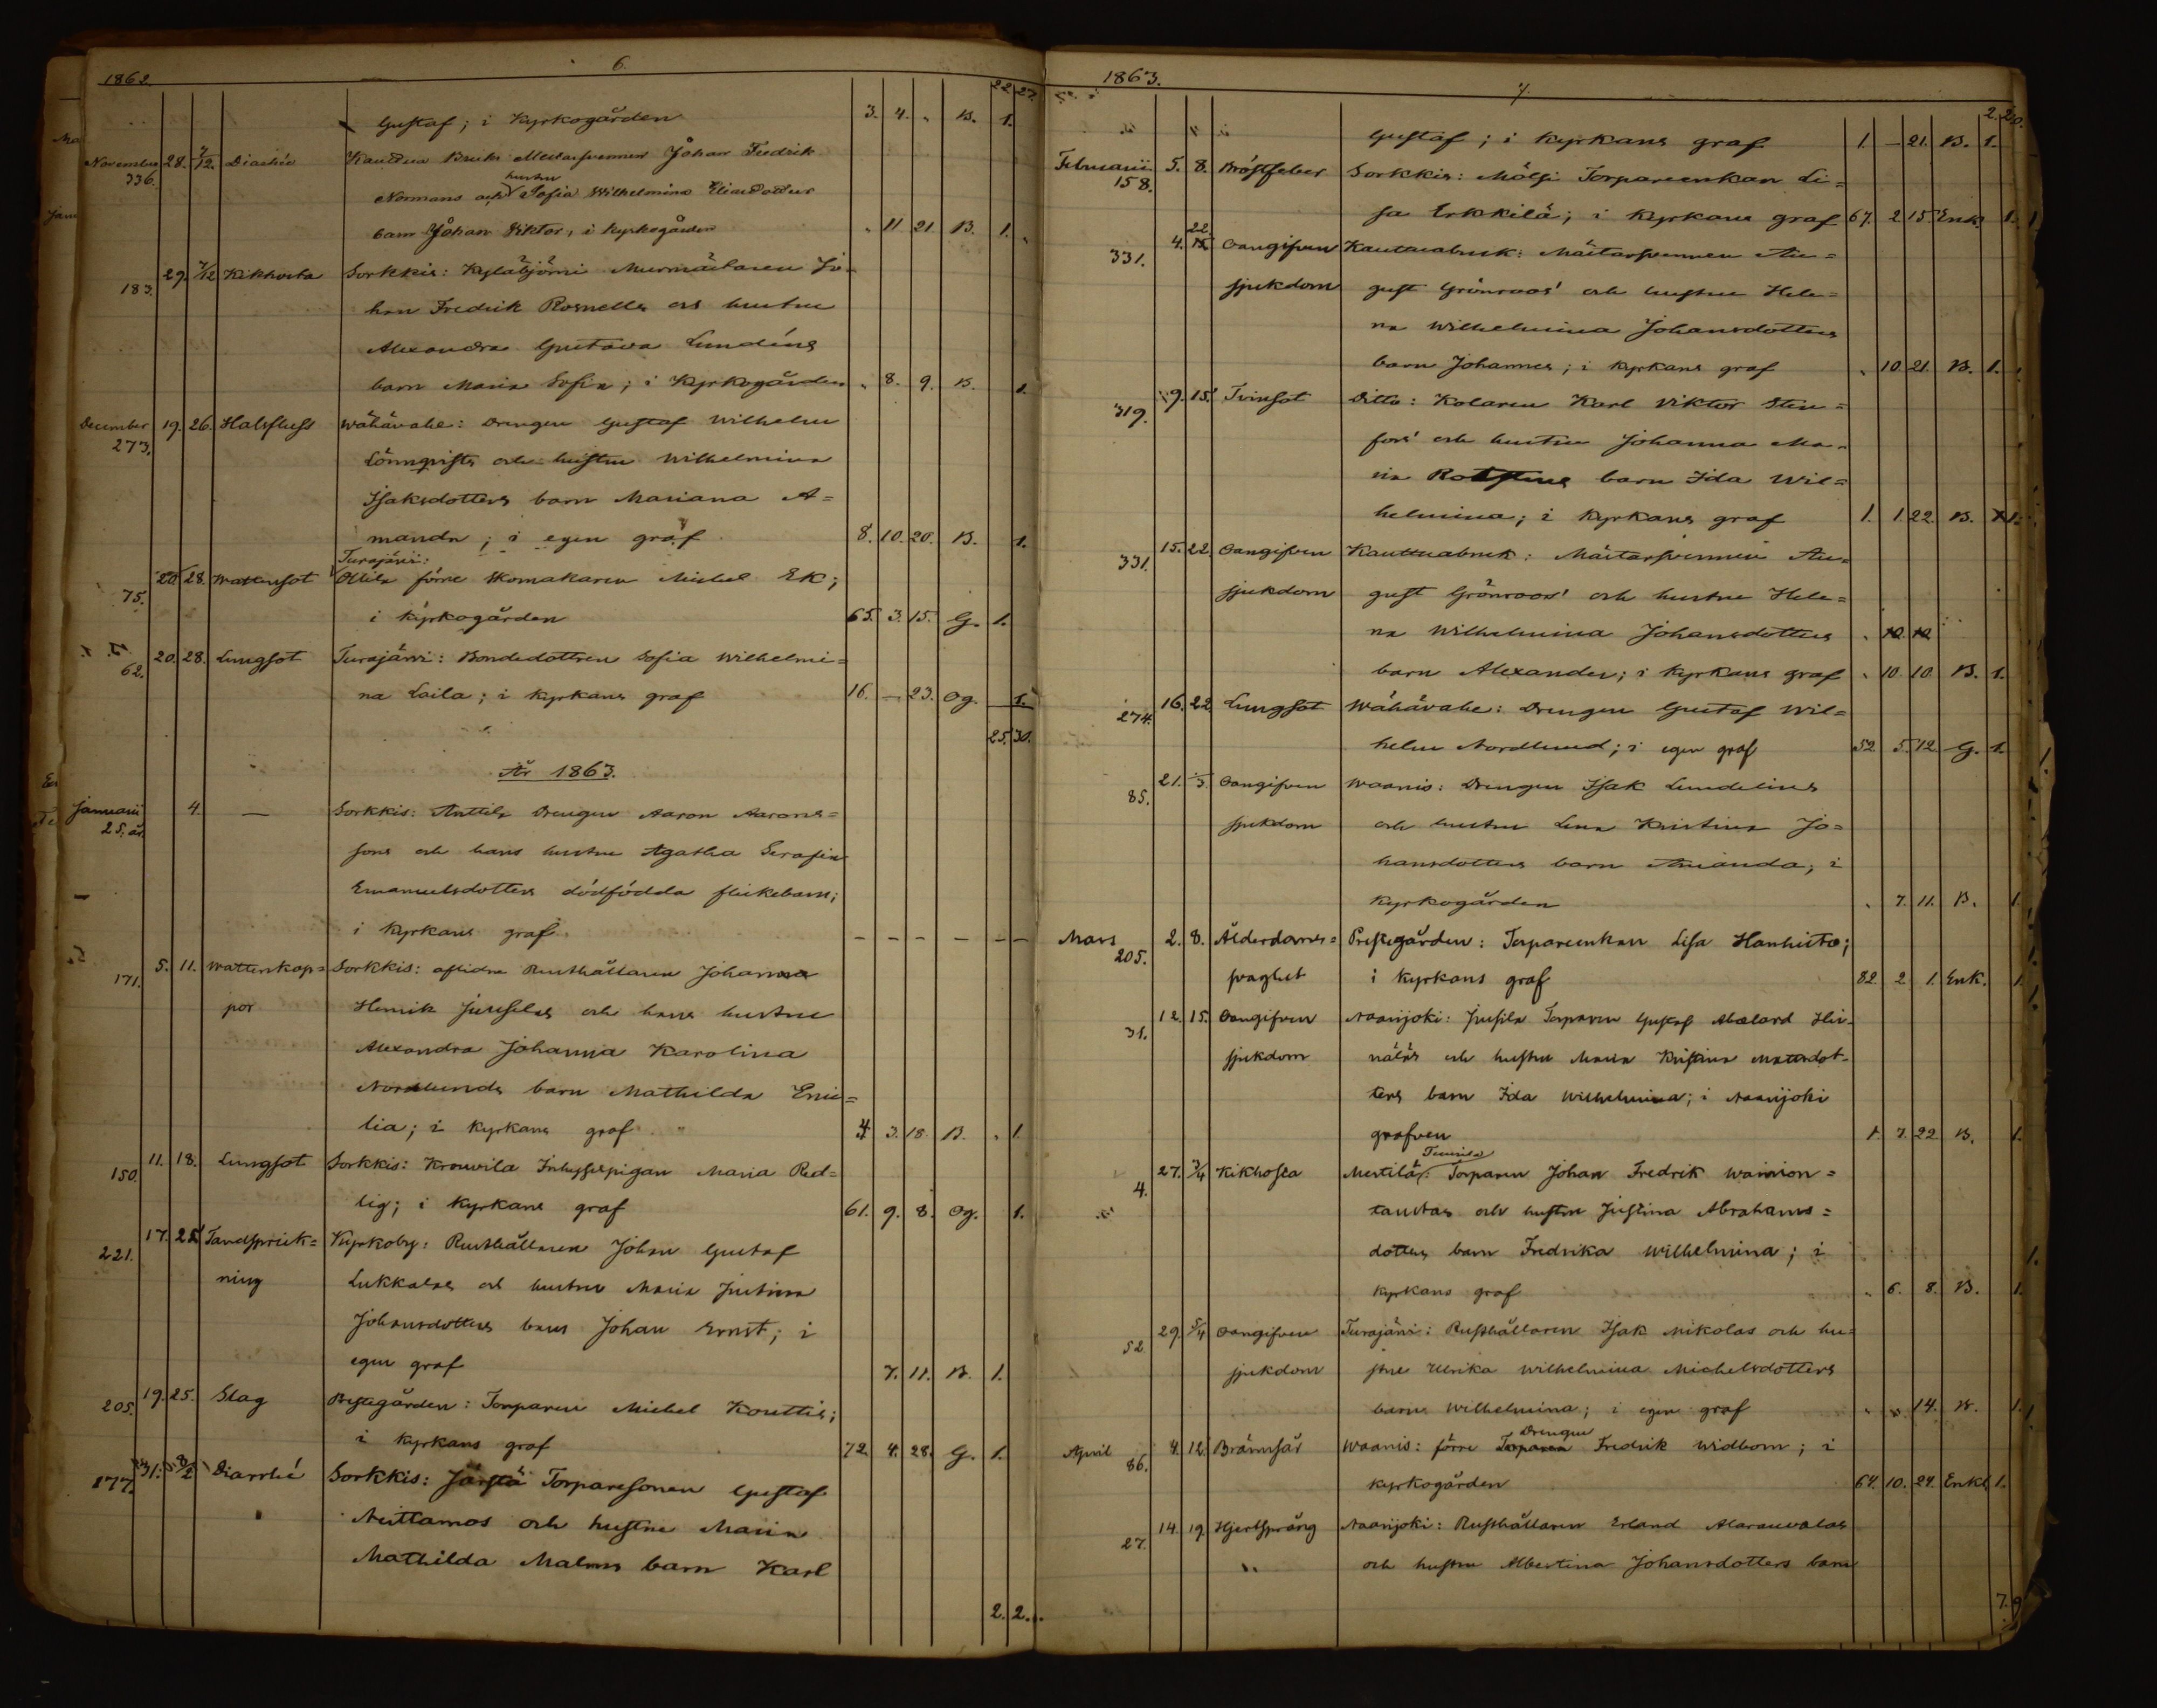 1862.
6.
22. 27.
Gustaf; i Kyrkogården 3. 4. „ B. 1.
November 28. 7/12. Diarhée Kauttua Bruks Mästarsvennen Johan Fredrik
336. hustru
Normans och Sofia Wilhelmina Eliaedotters
barn Johan Viktor, i kyrkogården „ 11 21. B. 1.
29. 7/12 Kikhosta Sorkkis: Kyläbjörni Murmästaren Jo-
183. han Fredrik Rosnells och hustru
Alexandra Gustava Lundéns
barn Maria Sofia; i Kyrkogården „ 8. 9. B. 1.
December 19. 26. Halsfluss Wähävahe: Drengen Gustaf Wilhelm
273. Lönnqvists och hustru Wilhelmina
Isaksdotters barn Mariana A=
manda; i egen graf 8. 10. 20. B. 1.
Turajärvi:
20. 28. Wattusot Ollila förre Skomakaren Michel Ek;
75. i kyrkogården 65. 3. 15. G. 1.
20. 28. Lungsot Turajärvi: Bondedottren Sofia Wilhelmi=
62. na Laila; i kyrkans graf 16. — 23. Og. 1.
25. 30.
År 1863.
Januarii 4. — Sorkkis: Anttila Drengen Aaron Aarons=
25. sons och hans hustru Agatha Serafia
Emanuelsdotters dödfödda flickebarn;
i kyrkans graf — — — — — —
5. 11. Wattenkop= Sorkkis: aflidne Rusthållaren Johan
171. por Henrik Juuselas och hans hustru
Alexandra Johanna Karolina
Nordlunds barn Mathilda Emi=
lia; i kyrkans graf 4 3. 18. B. „ 1.
11. 18. Lungsot Sorkkis: Krouvila Inhysespigan Maria Red=
150. lig; i kyrkans graf 61. 9. 8. Og. 1.
17. 25. Tandsprick= Kyrkoby: Rusthållaren Johan Gustaf
221. ning Lukkalas och hustru Maria Justina
Johansdotters barn Johan Ernst; i
egen graf 7. 11. B. 1.
19. 25. Slag Prestegården: Torparen Michel Kouttis;
205. i kyrkans graf 72. 4. 28. G. 1.
31. 8/2 Diarrhé Sorkkis: Torparesonen Gustaf
177. Neittamos och hustru Maria
Mathilda Malms barn Karl
2. 2.
1863.
7.
2. 20.
Gustaf; i kyrkans graf 1. — 21. B. 1.
Februarii 5. 8. Bröstfeber Sorkkis: Mölsi Torpareenkan Li=
158. sa Erkkilä; i kyrkans graf 67. 2 15. Enk. 1.
4. 22. Oangifven Kauttuabruk: Mästarsvennen Au=
331. sjukdom gust Grönroos' och hustru Hele=
na Wilhelmina Johansdotters
barn Johannes; i kyrkans graf „ 10. 21. B. 1.
9. 15. Tvinsot Ditto: Kolaren Karl Viktor Sten=
319. fors' och hustru Johanna Ma=
ria barn Ida Wil=
helmina; i kyrkans graf 1. 1. 22. B. 1.
15. 22. Oangifven Kauttuabruk: Mästarsvennen Au=
331. sjukdom gust Grönroos' och hustru Hele=
na Wilhelmina Johansdotters „ 10. 10.
barn Alexander; i kyrkans graf „ 10. 10. B. 1.
16. 22. Lungsot Wähävahe: Drengen Gustaf Wil=
274. helm Nordlund; i egen graf 52. 5. 12. G. 1.
21. Oangifven Waanis: Drengen Isak Lundelins
85. sjukdom och hustru Lena Kristina Jo=
hansdotters barn Amanda; i
kyrkogården „ 7. 11. B. 1.
Mars 2. 8. Ålderdoms= Prestegården: Torpareenkan Lisa Hanhisto;
205. svaghet i kyrkans graf 82. 2 1. Enk. 1.
12. 15. Oangifven Naarijoki: Jusila Torparen Gustaf Abelard
31. sjukdom och hustru Maria Kristina Mattsdot=
ters barn Ida Wilhelmina; i Naarijoki
grafven 1. 7. 22 B. 1.
27. 3/4 Kikhosta Mestilä: Torparen Johan Fredrik Wainion=
4. taustas och hustru Justina Abrahams=
dotters barn Fredrika Wilhelmina; i
kyrkans graf „ 6. 8. B. 1.
29. 5/4 Oangifven Turajärvi: Rusthållaren Isak Mikolas och hu=
52. sjukdom stru Ulrika Wilhelmina Michelsdotters
barn Wilhelmina; i egen graf „ „ 14. B. 1.
Drengen
April 4. 12. Brännsår Waanis: förre Torparen Fredrik Widbom; i
86. kyrkogården 64. 10. 24. Enkl. 1.
14. 19. Hjertsprång Naarijoki: Rusthållaren Erland
27. och hustru Albertina Johansdotters barn
7. 9